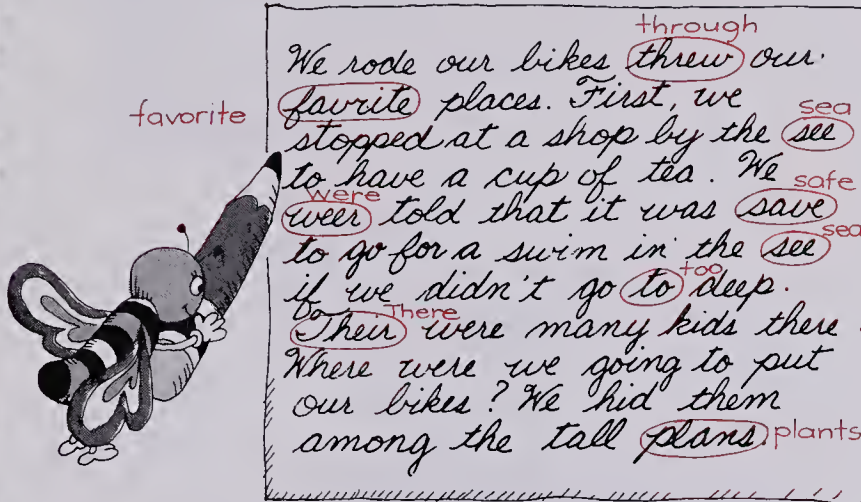 through
We rode our bikes threw our
favorite
favrite places. First, we
sea
stopped at a shop by the see
to have a cup of tea. We
were safe
weer told that it was save
to go for a swim in the see
sea
if we didn't go to deep.
too
There
Their were many kids there.
Where were we going to put
our bikes? We hid them
among the tall plans.
plants